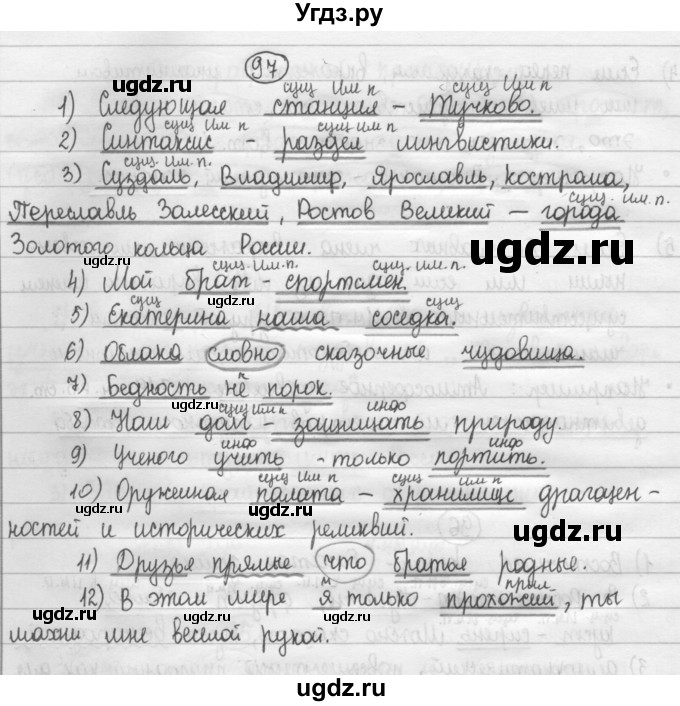 Угдз.ру
97
сущ. Им п сущ Им п
1) Следующая станция – Тучково.
сущ Им п сущ Им п
2) Синтаксис - раздел лингвистики.
сущ. Им. п.
3) Суздаль, Владимир, Ярославль, Кострома,
сущ. Им. п.
Переславль Залесский, Ростов Великий – города
Золотого кольца России.
сущ. Им. п. сущ. Им. п.
4) Мой брат - спортсмен.
сущ сущ
5) Екатерина наша соседка.
6) Облака словно сказочные чудовища
7) Бедность не порок.
сущ им п инф
8) Наш долг - защищать природу.
инф инф
9) Ученого учить - только портить.
сущ Им п сущ Им п
10) Оружейная палата – хранилище драгацен-
ностей и исторических реликвий.
11) Друзья прямые что братья родные.
м прил
12) В этом мире я только прохожий, ты
махни мне веселой рукой.
ugdz.ru
ugdz.ru
ugdz.ru
ugdz.ru
ugdz.ru
ugdz.ru
ugdz.ru
ugdz.ru
ugdz.ru
ugdz.ru
ugdz.ru
ugdz.ru